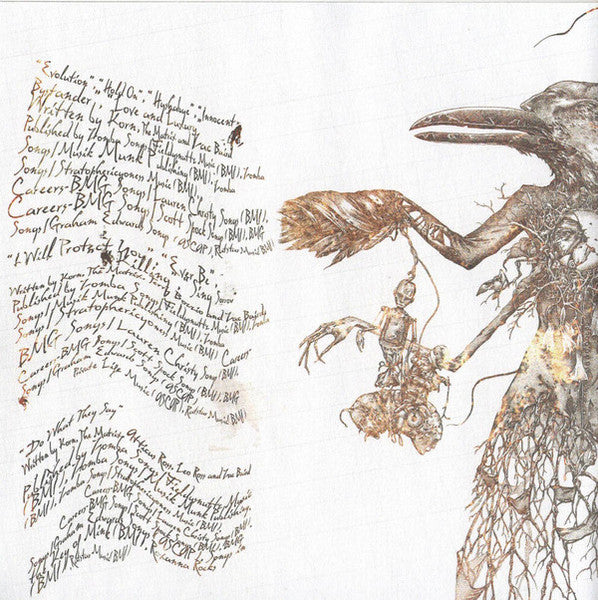 "Evolution", "Hold On", "Hushabye", "Innocent
Bystander", "Love and Luxury
Written by Korn, The Matrix and Trae Baird
Published by Zomba Songs/Fieldynutts Music (BMI), Zomba
Songs/Musik Munk Publishing (BMI), Zomba
Songs/Stratosphericyoness Music (BMI),
Careers-BMG Songs/Lauren Christy Songs (BMI),
Careers-BMG Songs/Scott Spock Songs (BMI), BMG
Songs/Graham Edwards Songs (ASCAP), Ratstar Music (BMI)
"I Will Protect You", "Ever Be",
"Killing", "Sing Sorrow
Written by Korn, The Matrix,
Published by Zomba Songs/Fieldynutts Music
Songs/Musik Munk Publishing (BMI), Zomba
Songs/Stratosphericyoness Music (BMI),
BMG Songs/Lauren Christy Songs (BMI), Careers-
Careers-BMG Songs/Scott Spock Songs (BMI), BMG
Songs/Graham Edwards Songs (ASCAP),
Pirate Life Music (ASCAP), Ratstar Music (BMI)
"Do What They Say"
Written by Korn, The Matrix, Atticus Ross, Leo Ross and Trae Baird
Published by Zomba Songs/Fieldynutts Music
(BMI), Zomba Songs/Musik Munk Publishing
(BMI), Zomba Songs/Stratosphericyoness Music (BMI),
Careers-BMG Songs/Lauren Christy Songs (BMI),
Careers-BMG Songs/Scott Spock Songs (BMI), BMG
Songs/Graham Edwards Songs (ASCAP), Songs in
the Key of Mink (BMI), Rosanna Rocks
(BMI), Ratstar Music (BMI)